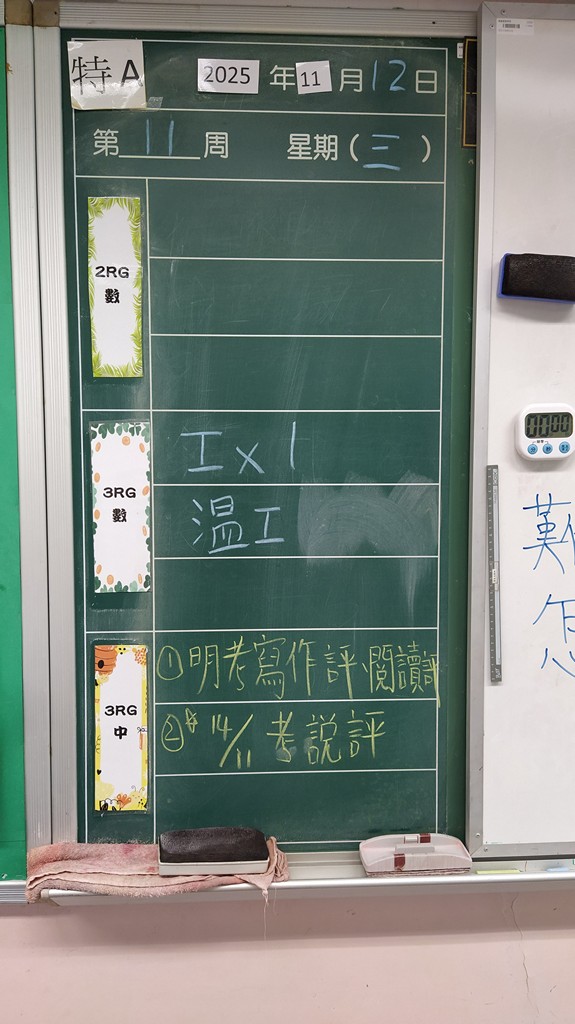 特A
2025 年 11 月 12 日
第 11 周 星期(三)
2RG
數
3RG
數
工x1
温工
3RG
中
①明考寫作評、閱讀評
②* 14/11 考說評
00:00